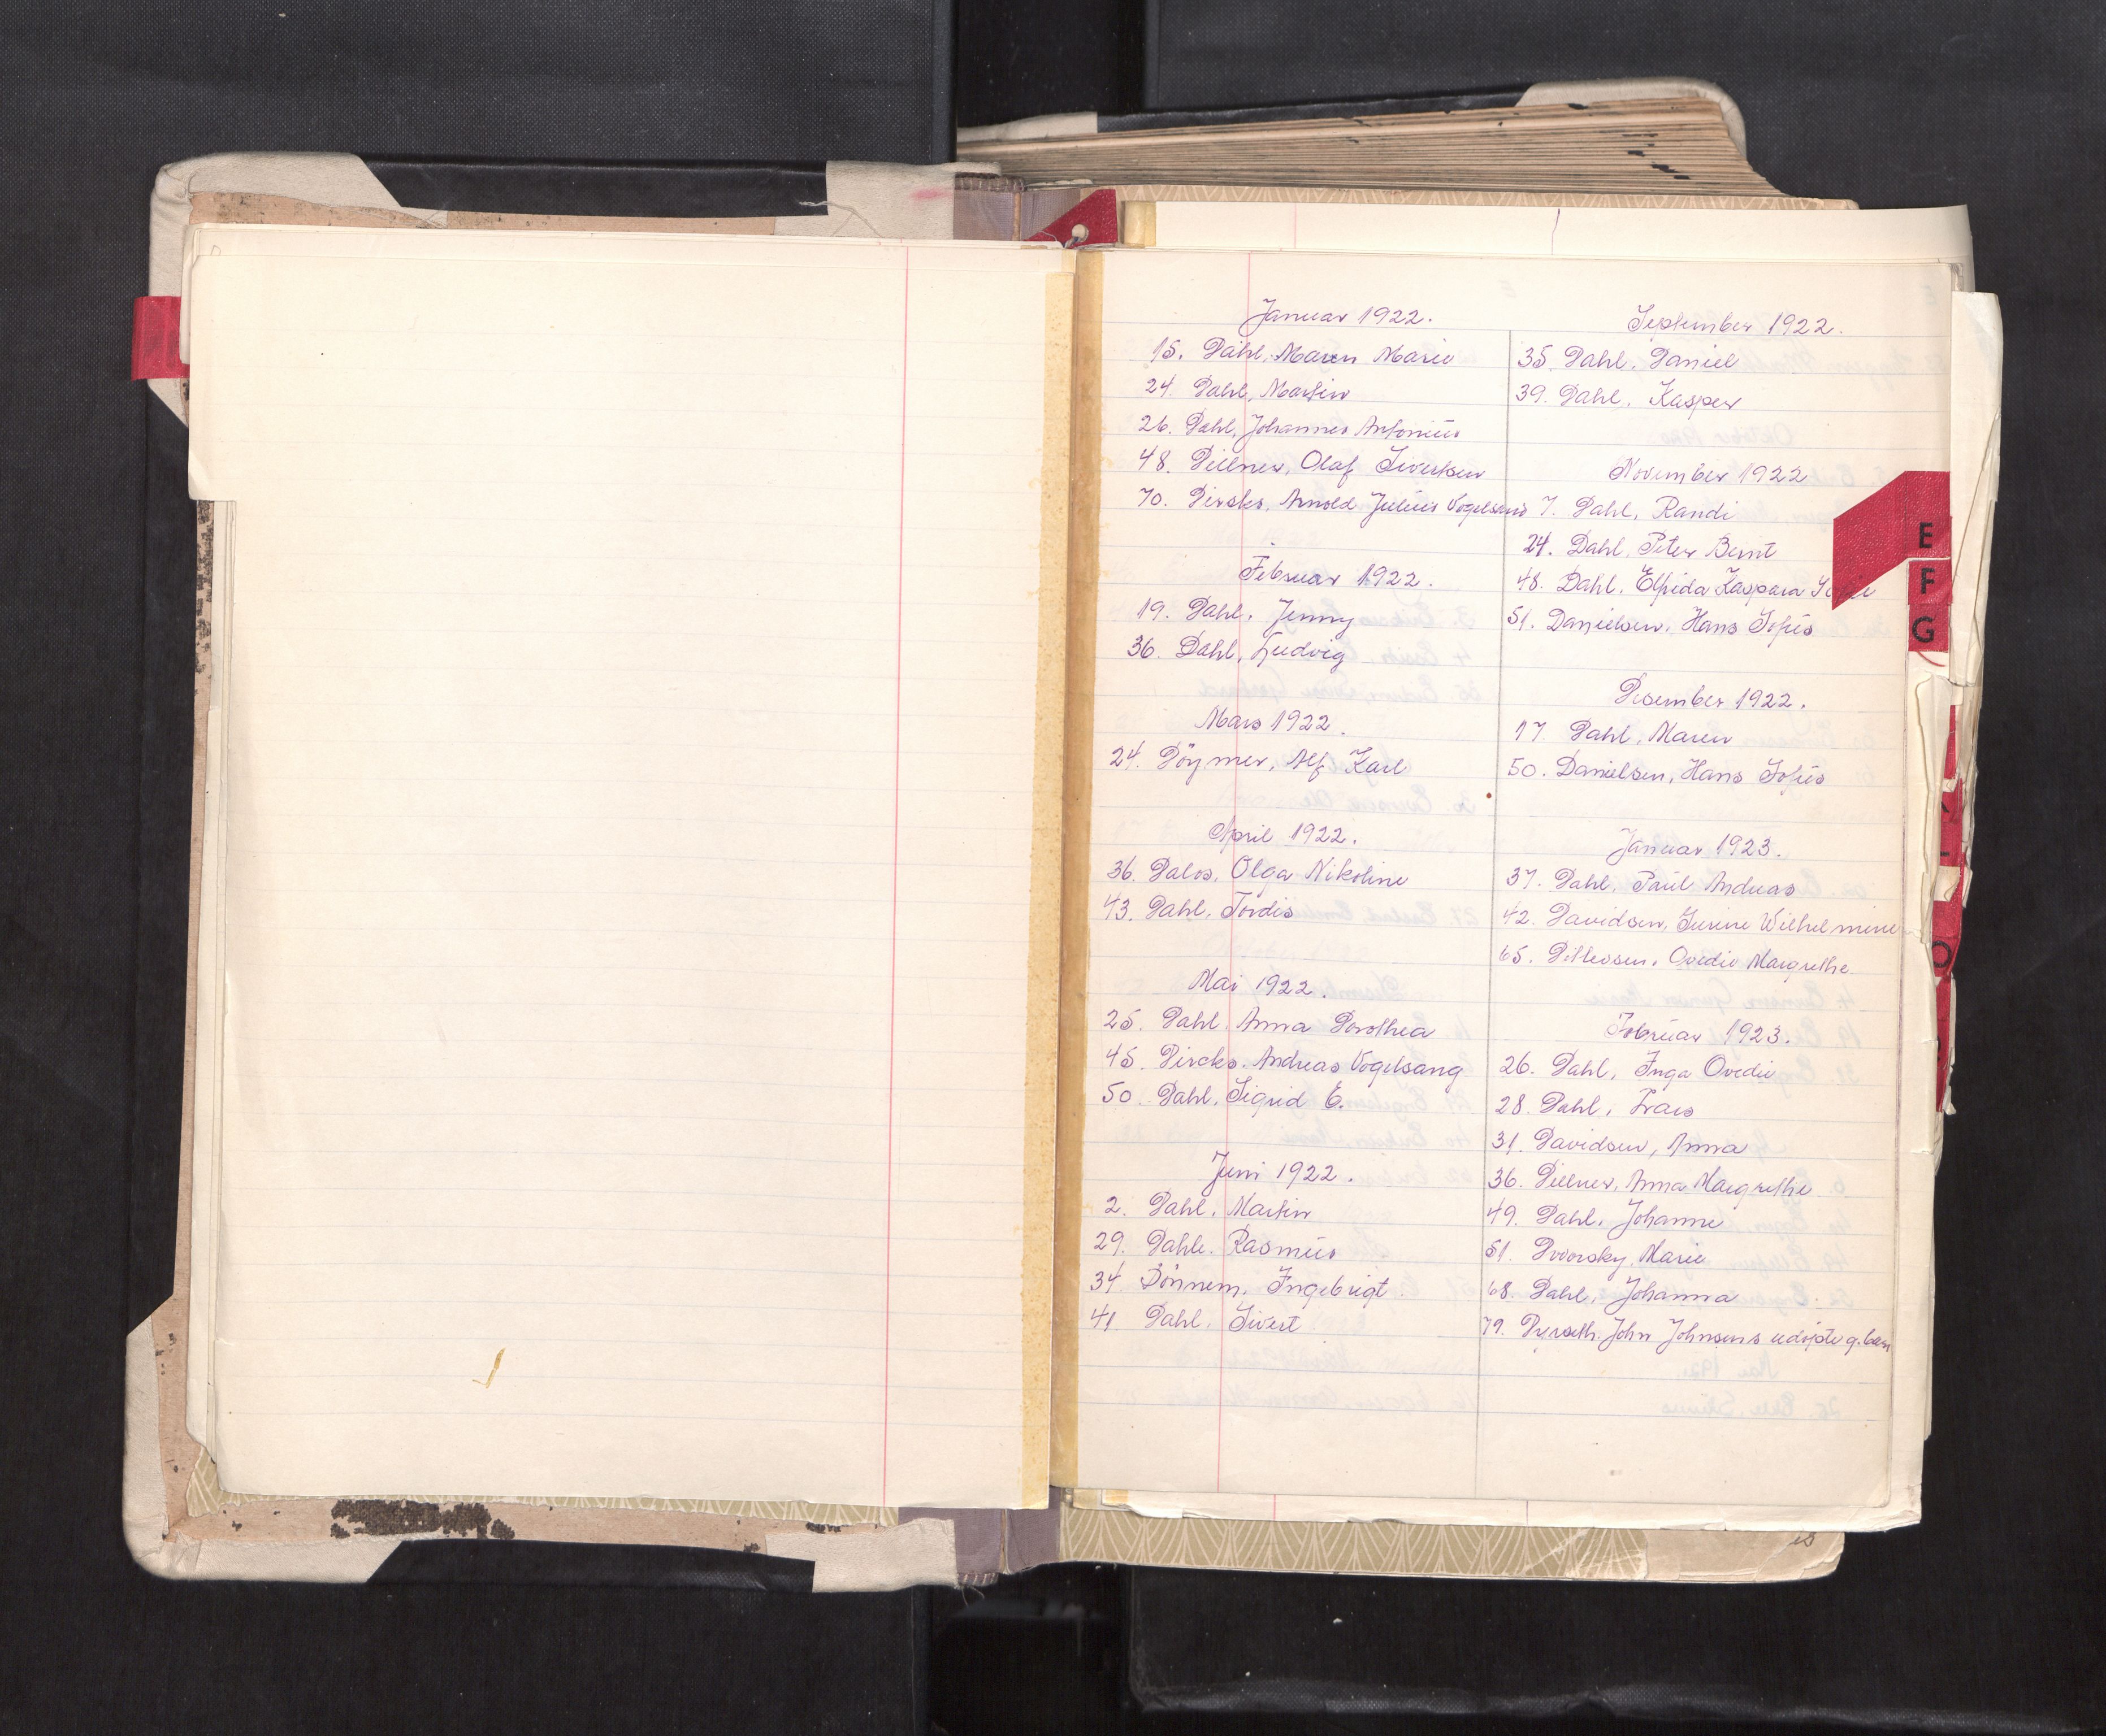 Januar 1922.
15. Dahl, Maren Marie
24. Dahl, Martin
26. Dahl, Johannes Antonius
48. Dillner, Olaf Sivertsen
70. Dircks, Arnold Julius Vogelsang
Februar 1922.
19. Dahl, Jenny
36. Dahl, Ludvig
Mars 1922.
24. Döymer, Alf Karl
April 1922.
36. Dalos, Olga Nikoline
43. Dahl, Tordis
Mai 1922.
25. Dahl, Anna Dorothea
45. Dircks, Andreas Vogelsang
50. Dahl, Sigrid E.
Juni 1922.
2. Dahl, Martin
29. Dahle, Rasmus
34. Dönnem, Ingebrigt.
41 Dahl, Sivert
September 1922.
35. Dahl, Daniel
39. Dahl, Kasper
November 1922
7. Dahl, Randi
24. Dahl, Peter Bernt
48. Dahl, Elfrida Kaspara
51. Danielsen, Hans Sofus
Desember 1922.
17 Dahl, Maren
50. Danielsen, Hans Sofus
Januar 1923.
37. Dahl, Paul Andreas
42. Davidsen, Serine Wilhelmine
65. Ditlevsen, Ovedie Margrethe
Februar 1923.
26. Dahl, Inga Ovedie
28. Dahl,
31. Davidsen, Anna
36. Dillner, Anna Margrethe
49. Dahl, Johanne
51. Dvorsky, Marie
68. Dahl, Johanna
79. Dyrseth, John Johnsens udöpte g.barn
E
F
G